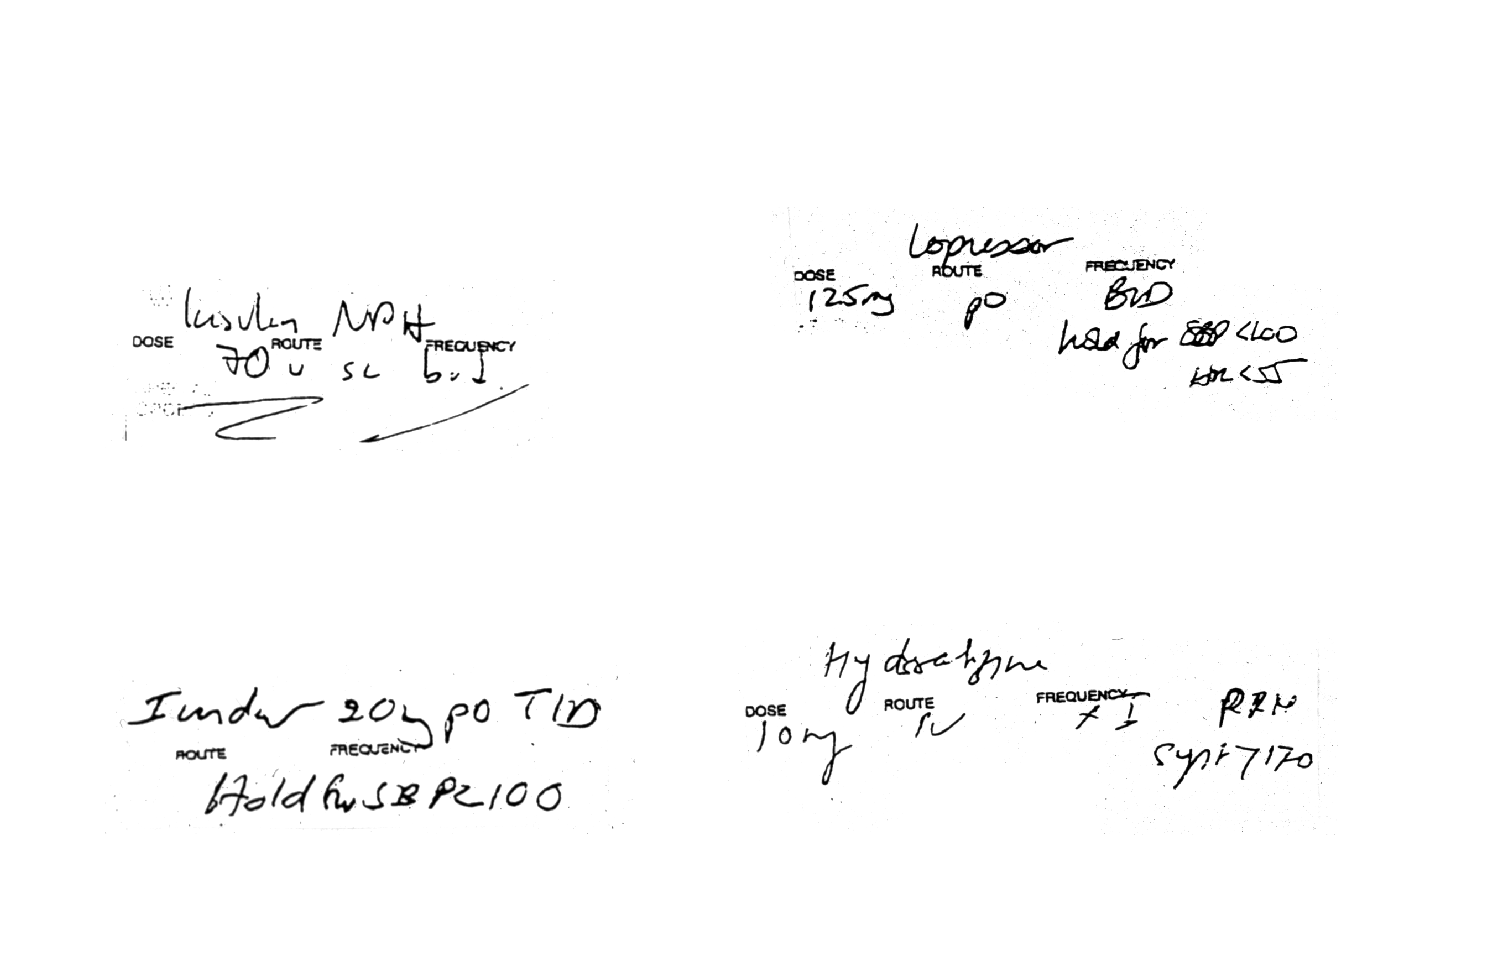 Insulin NPH
DOSE ROUTE FREQUENCY
70 u sc b.i.d
Lopressor
DOSE ROUTE FREQUENCY
125mg po BID
hold for SBP <100
HR <55
Inderal 20mg po TID
ROUTE FREQUENCY
Hold for SBP < 100
DOSE ROUTE FREQUENCY
10mg IV x I PRN